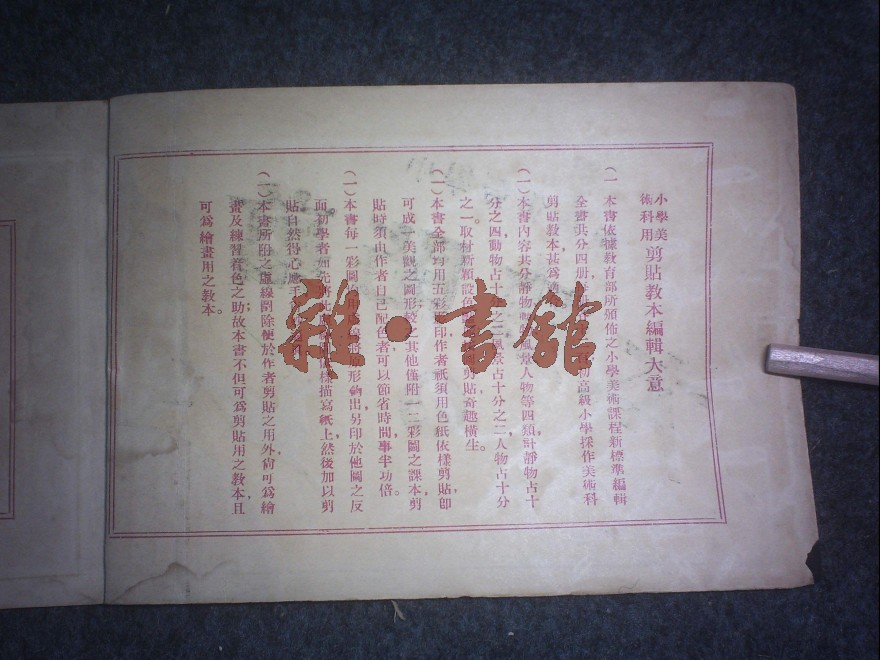 小學美術科用 剪貼教本編輯大意
(一)本書依據教育部所頒佈之小學美術課程新標準編輯
全書共分四册 高級小學採作美術科
剪貼教本甚爲
(一)本書內容共分靜物動 風景人物等四類,計靜物占十
分之四動物占十分之三風景占十分之二人物占十分
之一取材新穎設色 剪貼奇趣橫生。
(一)本書全部均用五彩 印作者祇須用色紙依樣剪貼,卽
可成一美觀之圖形;較 其他僅附一二彩圖之課本,剪
貼時須由作者自己配色者可以節省時間,事半功倍。
(一)本書每一彩圖 形鈎出另印於他圖之反
面。初學者如先將此 依樣描寫紙上,然後加以剪
貼自然得心應手
(一)本書所附之虛線圖除便於作者剪貼之用外,尙可爲繪
畫及練習着色之助;故本書不但可爲剪貼用之教本,且
可爲繪畫用之教本。
雜·書館